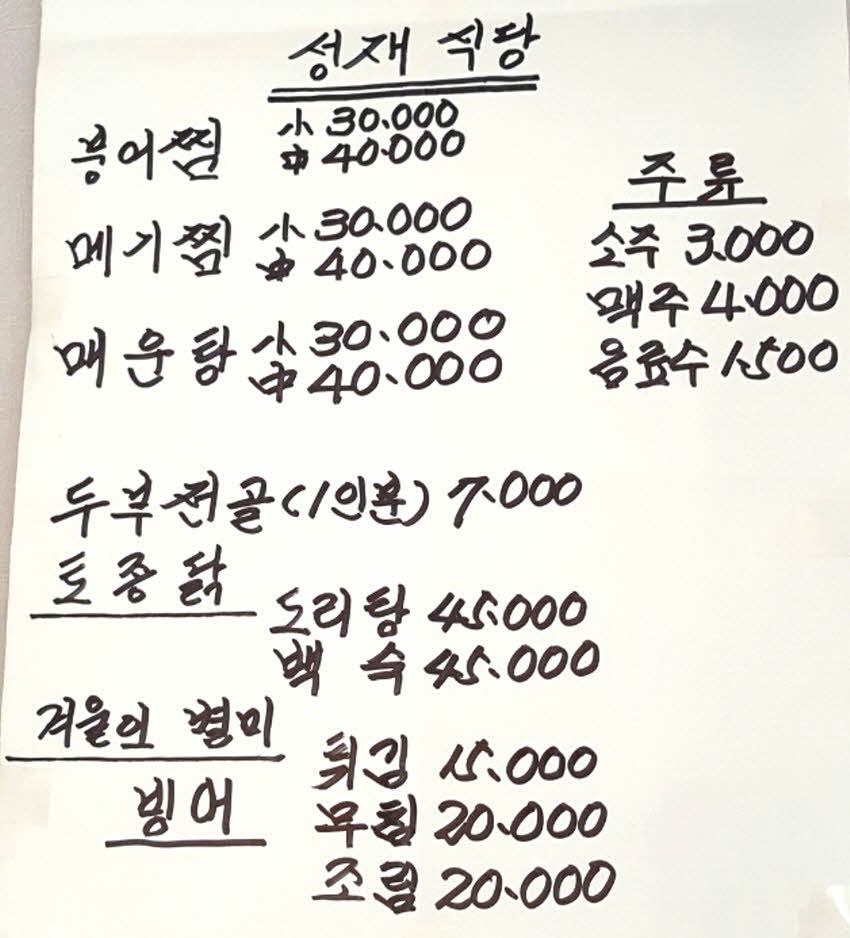 성재 식당
붕어찜 小 30.000
中 40.000
메기찜 小 30.000
中 40.000
매운탕 小 30.000
中 40.000
주류
소주 3.000
맥주 4.000
음료수 1.500
두부전골(1인분) 7.000
토종닭
도리탕 45.000
백숙 45.000
겨울의 별미
빙어
튀김 15.000
무침 20.000
조림 20.000